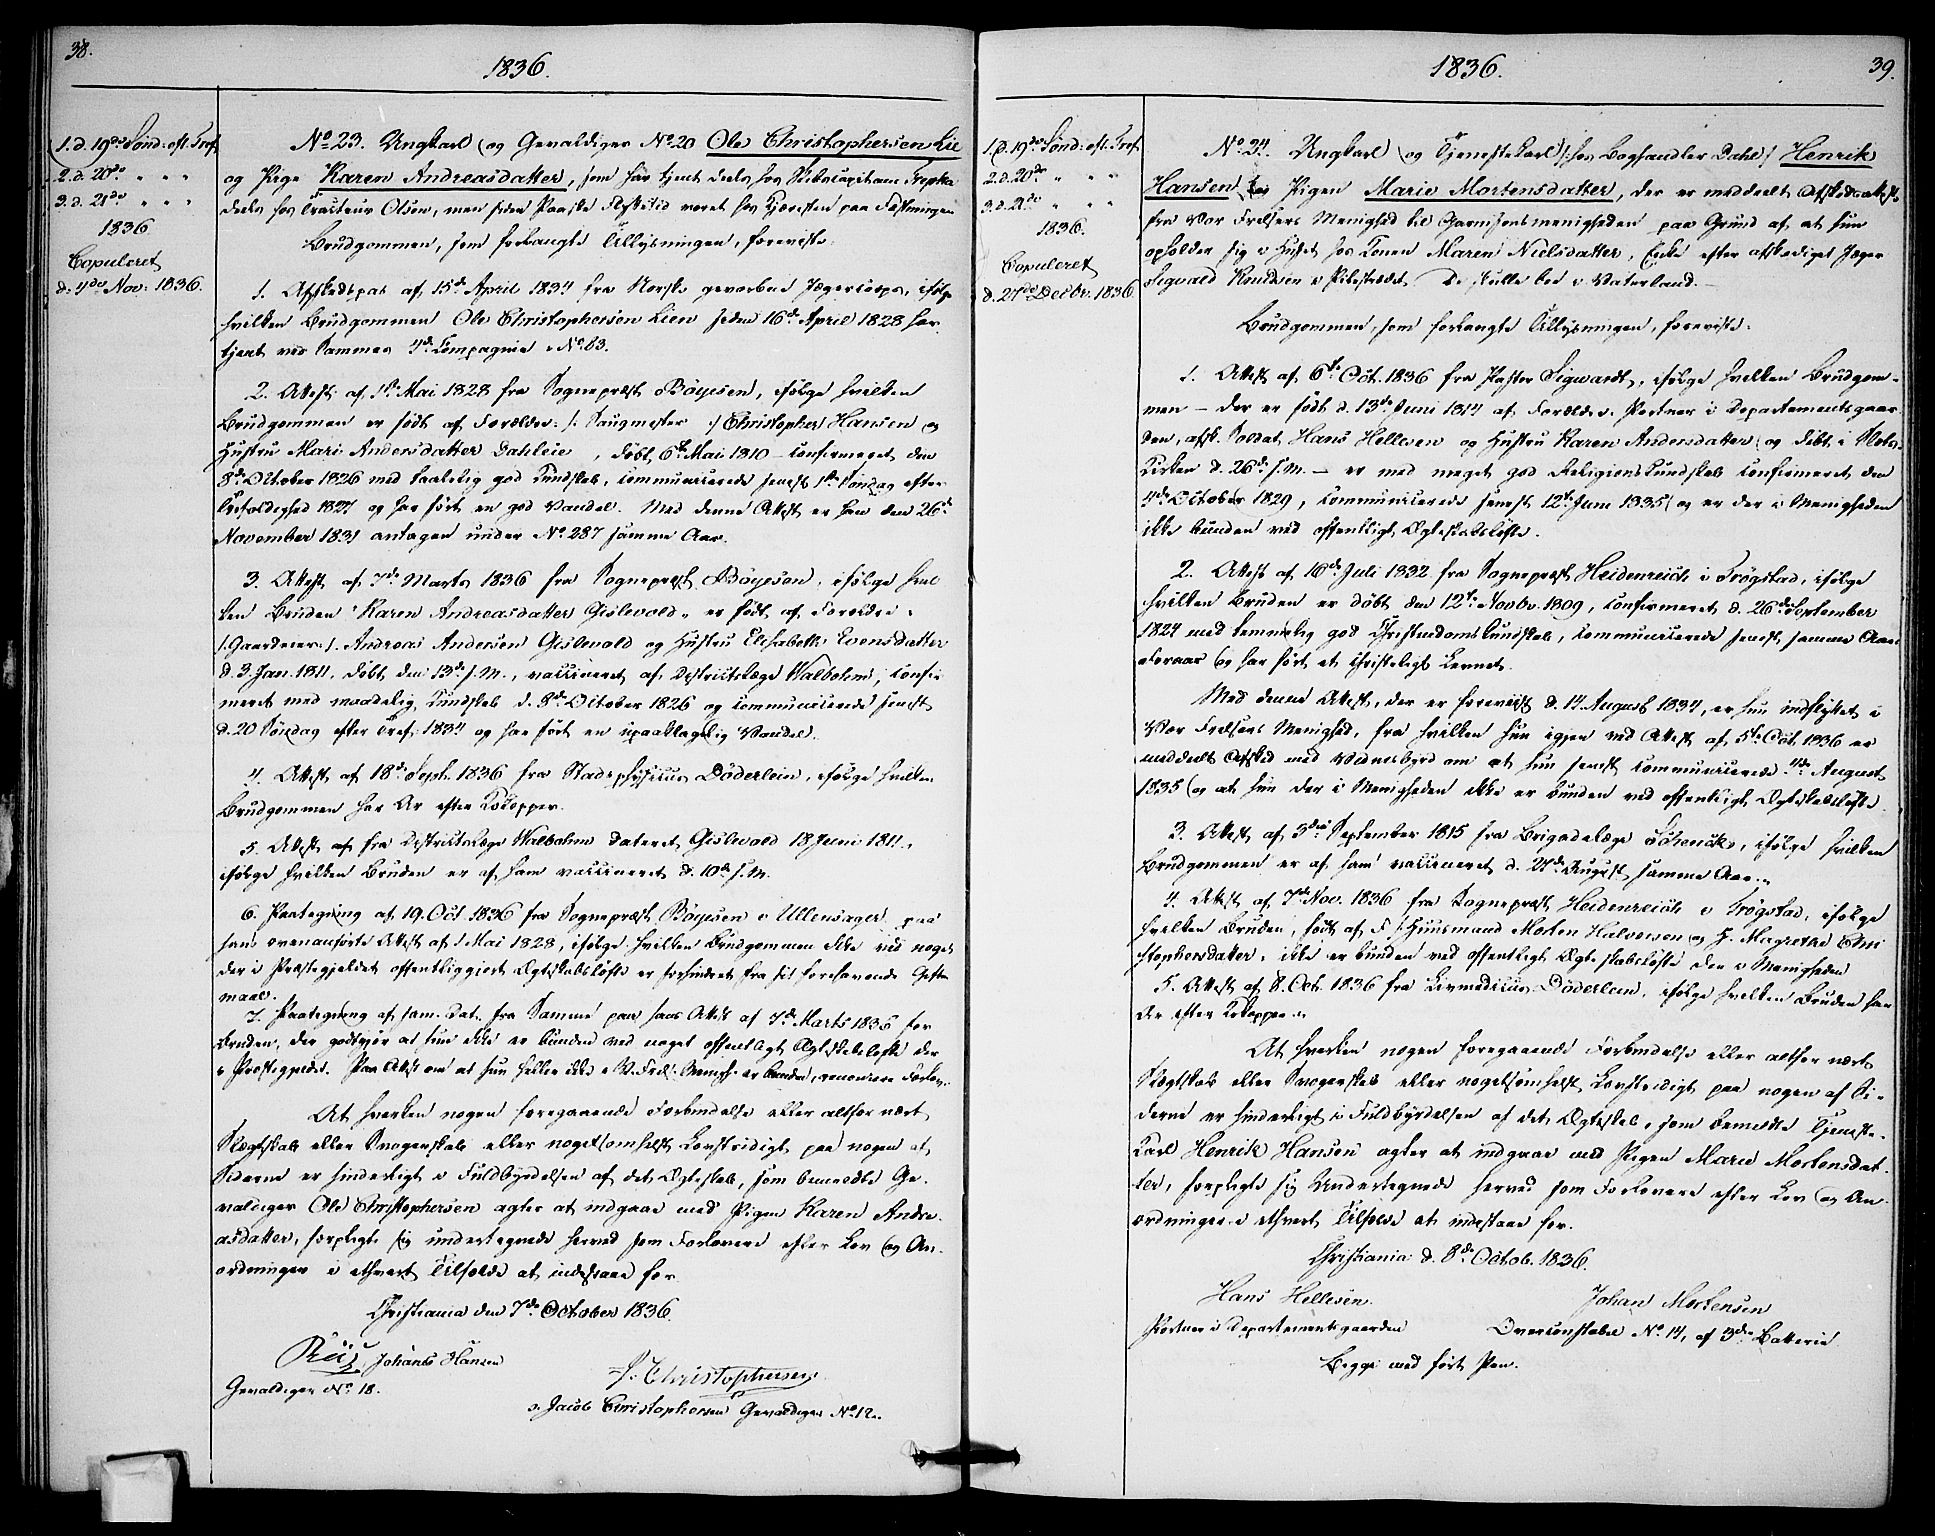 38.
1836.
1. d. 19de Sönd: eft. Tref.
2. d. 20de " " "
3. d. 21de " " "
1836
Copuleret
d: 4de Nov: 1836.
No 23. Ungkarl og Gevaldiger No 20 Ole Christophersen Lie
og Pige Karen Andreasdatter, som har tjent deels hos
deels hos Olsen, men siden Paaske Flyttetid været hos paa Fæstningen
Brudgommen, som forlangte Tillysningen, foreviste:
1. Afskedspas af 15de April 1834 fra Norske gevorbne Jægercorps, ifølge
hvilken Brudgommen Ole Christophersen Lien siden 16de April 1828 har
tjent ved Sammes 4de Compagnie No 63.
2. Attest af 1ste Mai 1828 fra Sognepræst Böyesen, ifølge hvilken
Brudgommen er født af Forældre: /: Saugmester :/ Christopher Hansen og
Hustru Mari Andersdatter Dahleie, døbt 6te Mai 1810 - confirmeret den
8de October 1826 med taalelig god Kundskab, communicerede senest 1ste Søndag efter
Trefoldighed 1827 og har ført en god Vandel. Med denne Attest er han den 26de
November 1831 antagen under No 287 samme Aar.
3. Attest af 7de Marts 1836 fra Sognepræst Böyesen, ifølge hvil
ken Bruden "Karen Andreasdatter Gislevold" er født af Forældre:
/: Gaardmand :/ Andreas Andersen Gislevold og Hustru Elisabeth Evensdatter
d. 3 Jan. 1811, døbt den 13de s. M., vaccineret af Districtslæge Walbohm, confir
meret med maadelig Kundskab d. 8de October 1826 og communicerede senest
d. 20 Søndag efter Tref. 1834 og har ført en upaaklagelig Vandel.
4. Attest af 18de Sept. 1836 fra Stadsphysicus Döderlein, ifølge hvilken
Brudgommen har Ar efter Kokopper.
5. Attest af fra Districtslæge Walbohm dateret Gislevold 18 Juni 1811,
ifølge hvilken Bruden er af ham vaccineret d. 10de s. M.
6. Paategning af 19. Oct. 1836 fra Sognepræst Böyesen i Ullensager paa
hans ovenanførte Attest af 1 Mai 1828, ifølge hvilken Brudgommen ikke ved noget
der i Præstegjeldet offentliggjort Ægteskabsløfte er forhindret fra sit forehavende Gifter
maal.
7. Paategning af sam. Dat. fra Samme paa hans Attest af 7de Marts 1836 for
Bruden, der godtgjør at hun ikke er bunden ved noget offentligt Ægteskabsløfte der
i Præstegjeldet. Paa Attest om at hun heller ikke i V. Frels. Menigh. er bunden, renoncere Forlov.
At hverken nogen foregaaende Forbindelse eller altfor nært
Slægtskab eller Svogerskab eller nogetsomhelst Lovstridigt paa nogen af
Siderne er hinderligt i Fuldbyrdelsen af det Ægteskab, som bemeldte Ge-
valdiger Ole Christophersen agter at indgaae med Pigen Karen Andre-
asdatter, forpligte sig undertegnede herved som Forlovere efter Lov og An-
ordninger i ethvert Tilfælde at indestaae for.
Christiania den 7de October 1836.
Johannes Hansen
Gevaldiger No 18.
J. Christophersen
Jacob Christophersen Gevaldiger No 12.
1836.
39.
1. d. 19de Sønd: eft. Tref.
2. d. 20de " " "
3. d. 21de " " "
1836.
Copuleret
d. 27de Decbr. 1836.
No 24. Ungkarl og Tjenestekarl /: hos Boghandler Dahl :/ Henrik
Hansen og Pigen Marie Mortensdatter, der er meddeelt Afskedsattest
fra Vor Frelsers Menighed til Garnisonsmenigheden paa Grund af at hun
opholder sig i Huset hos Konen Maren Nielsdatter, Enke efter afskediget Jæger
Sigvald Knudsen i Pilestrædet. De skulle boe i Vaterland.
Brudgommen, som forlangte Tillysningen, foreviste:
1. Attest af 6te Oct. 1836 fra Pastor Sigwardt, ifølge hvilken Brudgom-
men - der er født d. 13de Juni 1814 af Forældre: Portner i Departementsgaar-
den, afsk. Soldat Hans Hellesen og Hustru Karen Andersdatter og døbt i Slots-
Kirken d. 26de s. M. - er med meget god Religionskundskab confirmeret den
4de October 1829, communicerede senest 12te Juni 1835 og er der i Menigheden
ikke bunden ved offentligt Ægteskabsløfte.
2. Attest af 16de Juli 1832 fra Sognepræst Heidenreich i Trögstad, ifølge
hvilken Bruden er døbt den 12te Novbr. 1809, confirmeret d. 26de September
1824 med temmelig god Christendomskundskab, communicerede senest samme Aars
Foraar og har ført et christeligt Levnet.
Med denne Attest, der er foreviist d. 14 August 1834, er hun indflyttet i
Vor Frelsers Menighed, fra hvilken hun igjen ved Attest af 5te Oct. 1836 er
meddeelt Afsked med Vidnesbyrd om at hun senest communicerede August
1835 og at hun der i Menigheden ikke er bunden ved offentligt Ægteskabsløfte.
3. Attest af 3die September 1815 fra Brigadelæge Schenck, ifølge hvilken
Brudgommen er af ham vaccineret d. 27de August samme Aar.
4. Attest af 7de Nov. 1836 fra Sognepræst Heidenreich i Trögstad, ifølge
hvilken Bruden, født af F. /: Huusmand Morten Halvorsen og H. Magrethe Chri
stophersdatter, ikke er bunden ved offentligt Ægteskabsløfte der i Menigheden
5. Attest af 8. Oct. 1836 fra Livmedicus Döderlein, ifølge hvilken Bruden har
Ar efter Kokopper.
At hverken nogen foregaaende Forbindelse eller altfor nært
Slægtskab eller Svogerskab eller nogetsomhelst Lovstridigt paa nogen af Si-
derne er hinderligt i Fuldbyrdelsen af det Ægteskab, som bemeldte Tjeneste-
karl Henrik Hansen agter at indgaae med Pigen Marie Mortensdat-
ter, forpligte sig Undertegnede herved som Forlovere efter Lov og An-
ordninger i ethvert Tilfælde at indestaae for.
Christiania d. 8de Octob. 1836.
Hans Hellesen
Portner i Departementsgaarden
Johan Mortensen
Overconstabel No 14, af 3die Batterie
Begge med ført Pen.